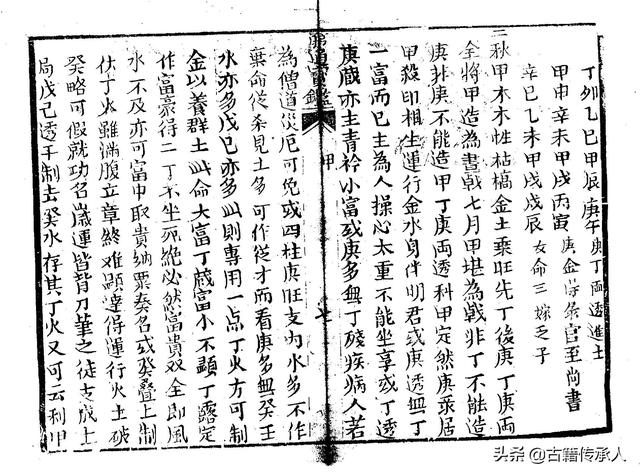 丁卯乙巳甲辰庚午庚丁兩透進士
甲申辛未甲戌丙寅庚金得祿官至尚書
辛巳乙未甲戌戊辰女命三嫁乏子
三秋甲木木性枯槁金土乘旺先丁後庚丁庚兩
全將甲造為畫戟七月甲堪為戟非丁不能造
庚非庚不能造甲丁庚兩透科甲定然庚乘居
甲殺印相生運行金水身伴明君或庚透無丁
一富而已主為人操心太重不能坐享或丁透
庚藏亦主青衿小富或庚多無丁殘疾病人若
佛道寶鑑
甲
為僧道災厄可免或四柱庚旺支內水多不作
棄命從殺見土多可作從才而看庚多無癸壬
水亦多戊己亦多此則專用一点丁火方可制
金以養群土此命大富丁藏富小不顯丁露定
作富豪得二丁不坐死絕必然富貴双全即風
水不及亦可富中取貴納粟奏名或癸疊上制
伏丁火雖滿腹文章終難顯達得運行火土破
癸略可假就功名歲運皆背刀筆之徒支成土
局戊己透干制去癸水存其丁火又可云利甲
头条@古籍传承人